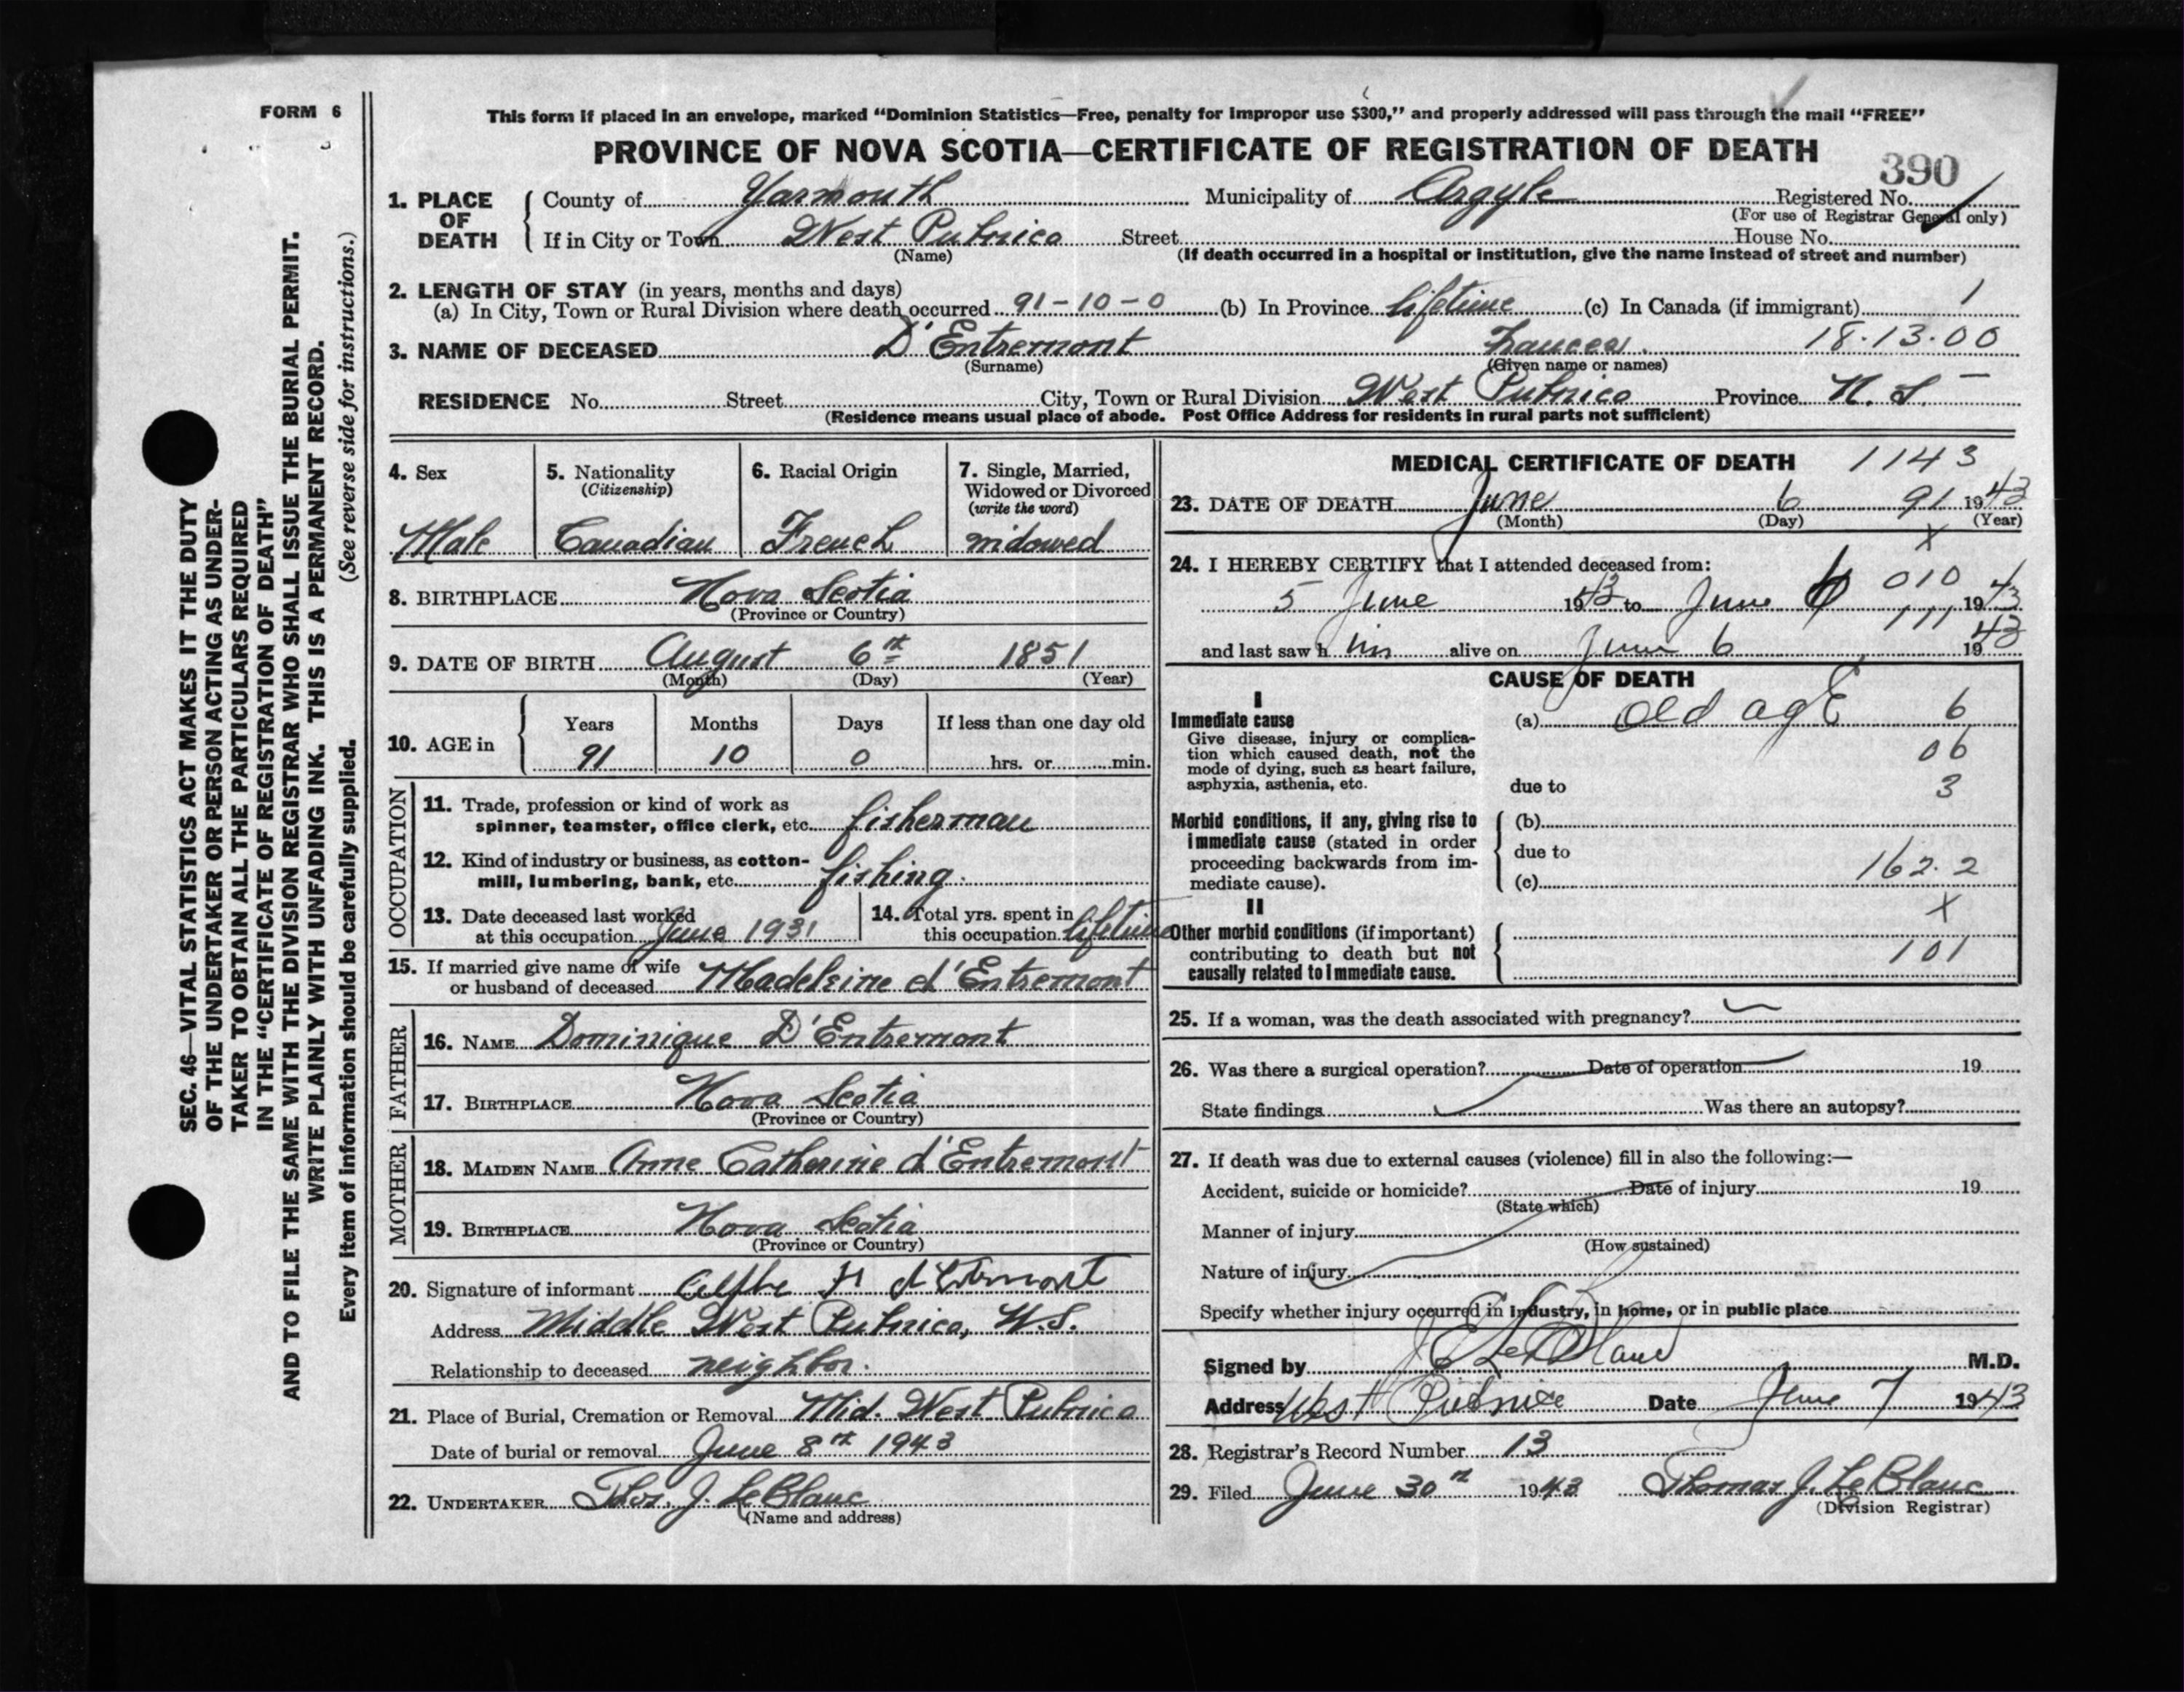 FORM 6
This form if placed in an envelope, marked “Dominion Statistics—Free, penalty for improper use $300,” and properly addressed will pass through the mail “FREE”
PROVINCE OF NOVA SCOTIA—CERTIFICATE OF REGISTRATION OF DEATH
390
1. PLACE OF DEATH
County of Yarmouth Municipality of Argyle Registered No.
(For use of Registrar General only)
If in City or Town West Pubnico Street House No.
(Name)
(If death occurred in a hospital or institution, give the name instead of street and number)
2. LENGTH OF STAY (in years, months and days)
(a) In City, Town or Rural Division where death occurred 91-10-0 (b) In Province lifetime (c) In Canada (if immigrant)
18.13.00
3. NAME OF DECEASED D'Entremont Frances
(Surname) (Given name or names)
RESIDENCE No. Street City, Town or Rural Division West Pubnico Province N. S.
(Residence means usual place of abode. Post Office Address for residents in rural parts not sufficient)
4. Sex
Male
5. Nationality
(Citizenship)
Canadian
6. Racial Origin
French
7. Single, Married,
Widowed or Divorced
(write the word)
widowed
8. BIRTHPLACE Nova Scotia
(Province or Country)
9. DATE OF BIRTH August 6th 1851
(Month) (Day) (Year)
10. AGE in
Years Months Days If less than one day old
91 10 0 hrs. or min.
OCCUPATION
11. Trade, profession or kind of work as
spinner, teamster, office clerk, etc. fisherman
12. Kind of industry or business, as cotton-
mill, lumbering, bank, etc. fishing.
13. Date deceased last worked
at this occupation June 1931
14. Total yrs. spent in
this occupation lifetime
15. If married give name of wife
or husband of deceased Madeleine d'Entremont
FATHER
16. NAME Dominique D'Entremont
17. BIRTHPLACE Nova Scotia
(Province or Country)
MOTHER
18. MAIDEN NAME Anne Catherine d'Entremont
19. BIRTHPLACE Nova Scotia
(Province or Country)
20. Signature of informant H d'Entremont
Address Middle West Pubnico, N.S.
Relationship to deceased neighbor.
21. Place of Burial, Cremation or Removal Mid. West Pubnico
Date of burial or removal June 8th 1943
22. UNDERTAKER Thos. J. LeBlanc
(Name and address)
MEDICAL CERTIFICATE OF DEATH 1143
23. DATE OF DEATH June 6 91 1943
(Month) (Day) (Year)
X
24. I HEREBY CERTIFY that I attended deceased from:
010
5 June 1943 to June 6 1943
111
and last saw him alive on June 6 1943
CAUSE OF DEATH
I
Immediate cause
Give disease, injury or complica-
tion which caused death, not the
mode of dying, such as heart failure,
asphyxia, asthenia, etc.
(a) old age 6
06
due to 3
Morbid conditions, if any, giving rise to
immediate cause (stated in order
proceeding backwards from im-
mediate cause).
(b)
due to
(c) 162.2
X
II
Other morbid conditions (if important)
contributing to death but not
causally related to immediate cause.
101
25. If a woman, was the death associated with pregnancy?
26. Was there a surgical operation? Date of operation 19
State findings Was there an autopsy?
27. If death was due to external causes (violence) fill in also the following:—
Accident, suicide or homicide? Date of injury 19
(State which)
Manner of injury
(How sustained)
Nature of injury
Specify whether injury occurred in industry, in home, or in public place
Signed by J E LeBlanc M.D.
Address West Pubnico Date June 7 1943
28. Registrar's Record Number 13
29. Filed June 30th 1943 Thomas J. LeBlanc
(Division Registrar)
SEC. 46—VITAL STATISTICS ACT MAKES IT THE DUTY
OF THE UNDERTAKER OR PERSON ACTING AS UNDER-
TAKER TO OBTAIN ALL THE PARTICULARS REQUIRED
IN THE “CERTIFICATE OF REGISTRATION OF DEATH”
AND TO FILE THE SAME WITH THE DIVISION REGISTRAR WHO SHALL ISSUE THE BURIAL PERMIT.
WRITE PLAINLY WITH UNFADING INK. THIS IS A PERMANENT RECORD.
Every item of information should be carefully supplied. (See reverse side for instructions.)